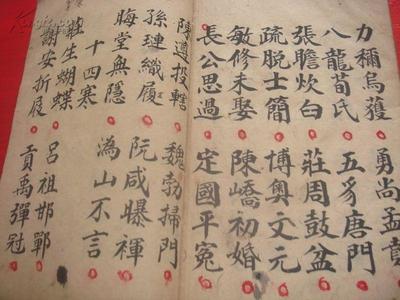 力稱烏獲 勇尚孟賁
八龍荀氏 五豸唐門
張瞻炊臼 莊周鼓盆
疏脫士簡 博奧文元
敏修未娶 陳嶠初婚
長公思過 定國平冤
陳遵投轄 魏勃掃門
孫璉織履 阮咸曝褌
晦堂無隱 溈山不言
十四寒
莊生蝴蝶 呂祖邯鄲
謝安折屐 貢禹彈冠